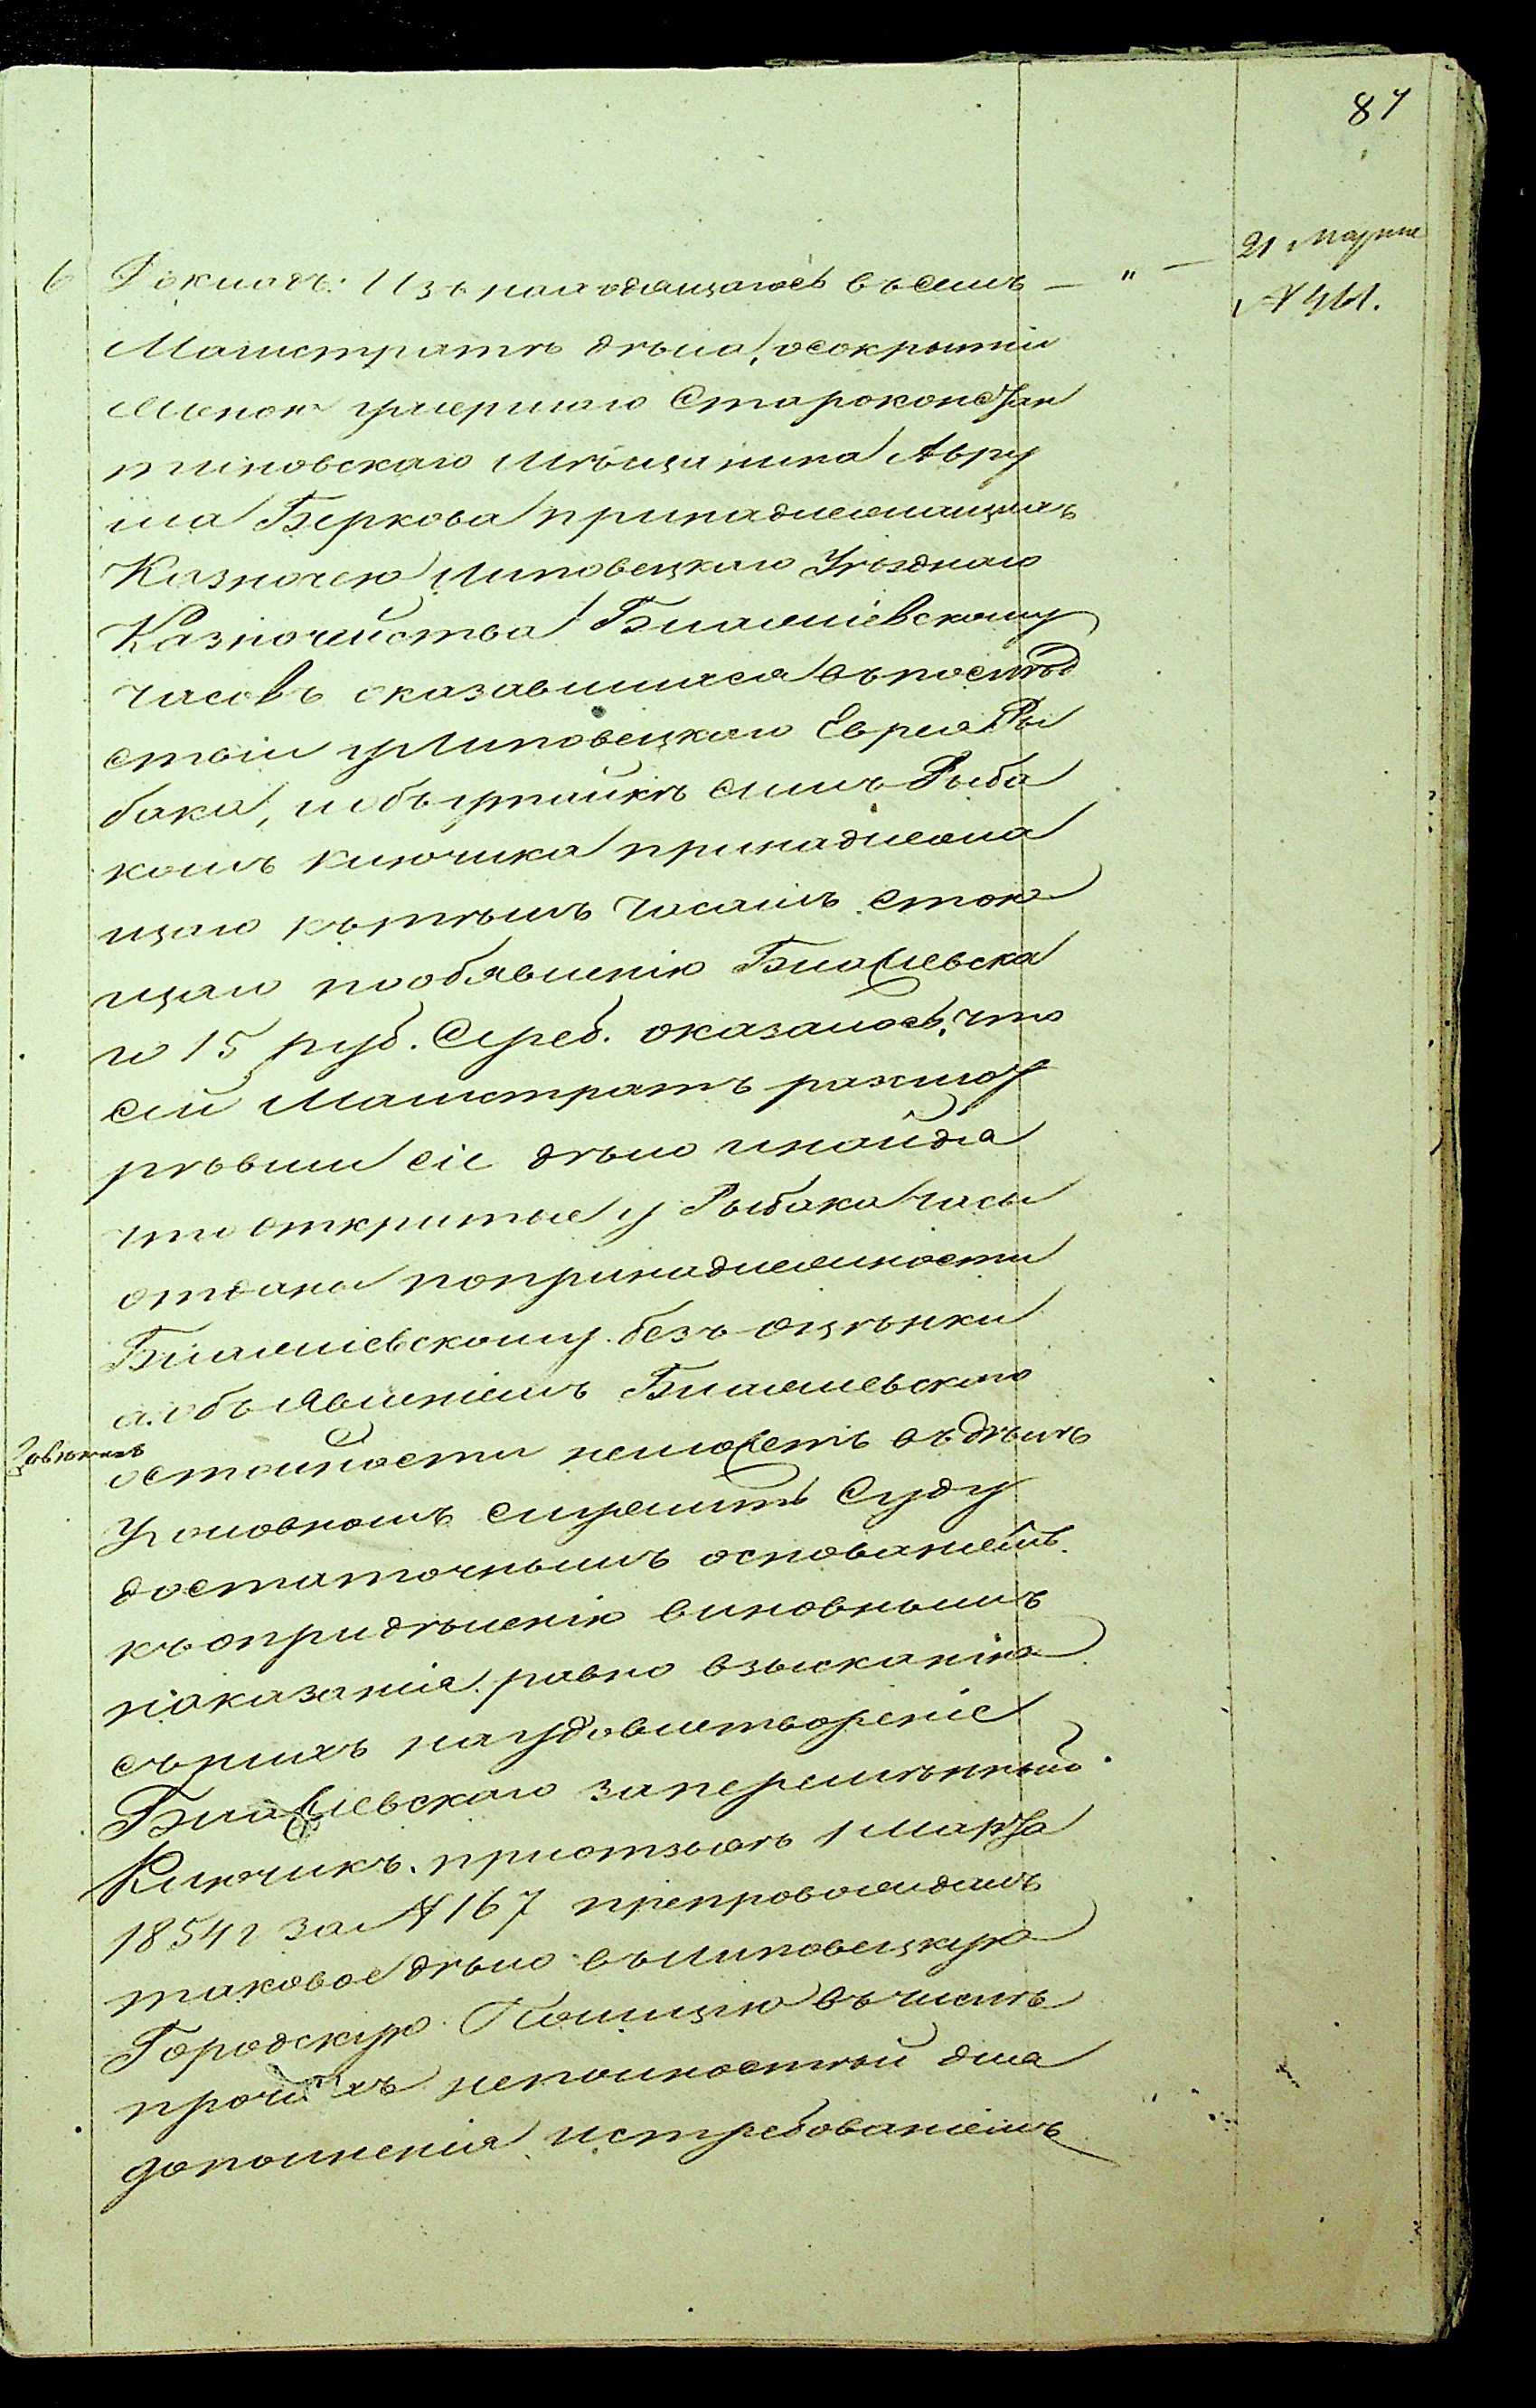 87
21 Марта
№ 461.
6 Докладъ: Изъ находящагося въ семъ — " —
Магистратѣ дѣла, о сокрытіи
женою умершаго Староконстан
тиновскаго мѣщанина Авру
ма Беркова принадлежащихъ
Казначею Липовецкаго Уѣзднаго
Казначейства Билажіевскому
часовъ оказавшихся въ послѣд
ствіи у Липовецкаго Еврея Ры
бака, и объ утайкѣ симъ Рыба
комъ ключика принадлежа
щаго къ тѣмъ часамъ стою
щаго по обявленію Билажіевска
го 15 руб. Сереб. оказалось, что
сей Магистратъ разсмот
рѣвши сіе дѣло и найдя
что открытые у Рыбака часы
отданы по принадлежности
Билажіевскому безъ оцѣнки
а объявленіемъ Билажіевскаго
о стоимости неможетъ въ дѣлѣ
Уголовномъ служить Суду
достаточнымъ основаніемъ
къ опредѣленію виновнымъ
наказанія равно взысканію
съ нихъ на удовлетвореніе
Билажіевскаго за перемѣнный
Ключикъ. при отзывѣ 1 Марта
1854 г за № 167 препровождалъ
таковое дѣло въ Липовецкую
Городскую Полицію въ числѣ
прочихъ неполностей для
дополненія истребованіемъ